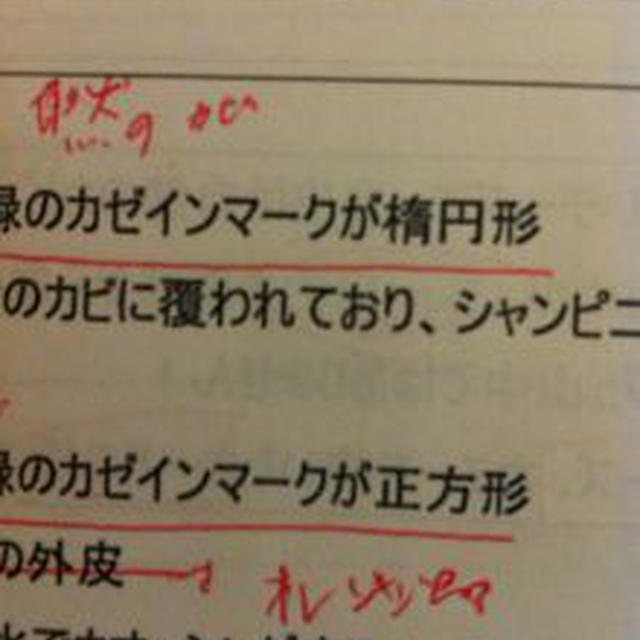 のカビ
緑のカゼインマークが楕円形
のカビに覆われており、シャンピニ
緑のカゼインマークが正方形
の外皮